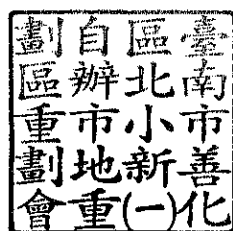 臺南市善化
區北小新(一)
自辦市地重
劃區重劃會